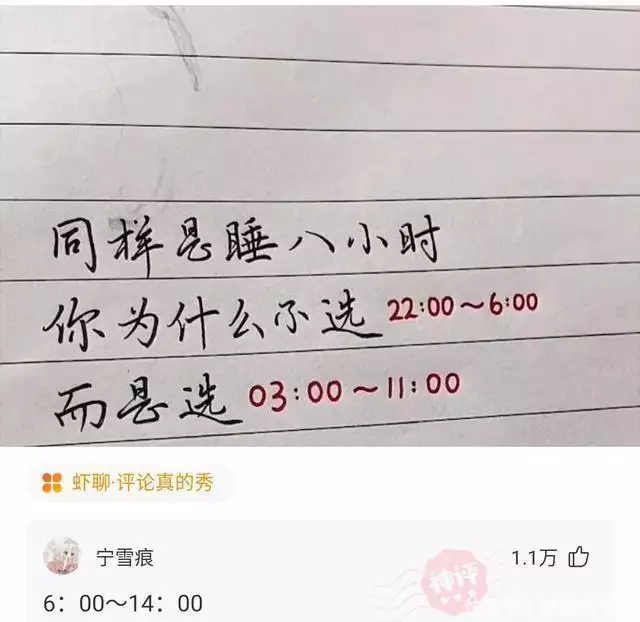 同样是睡八小时
你为什么不选 22:00～6:00
而是选 03:00～11:00
虾聊·评论真的秀
宁雪痕
1.1万
神评
6：00～14：00